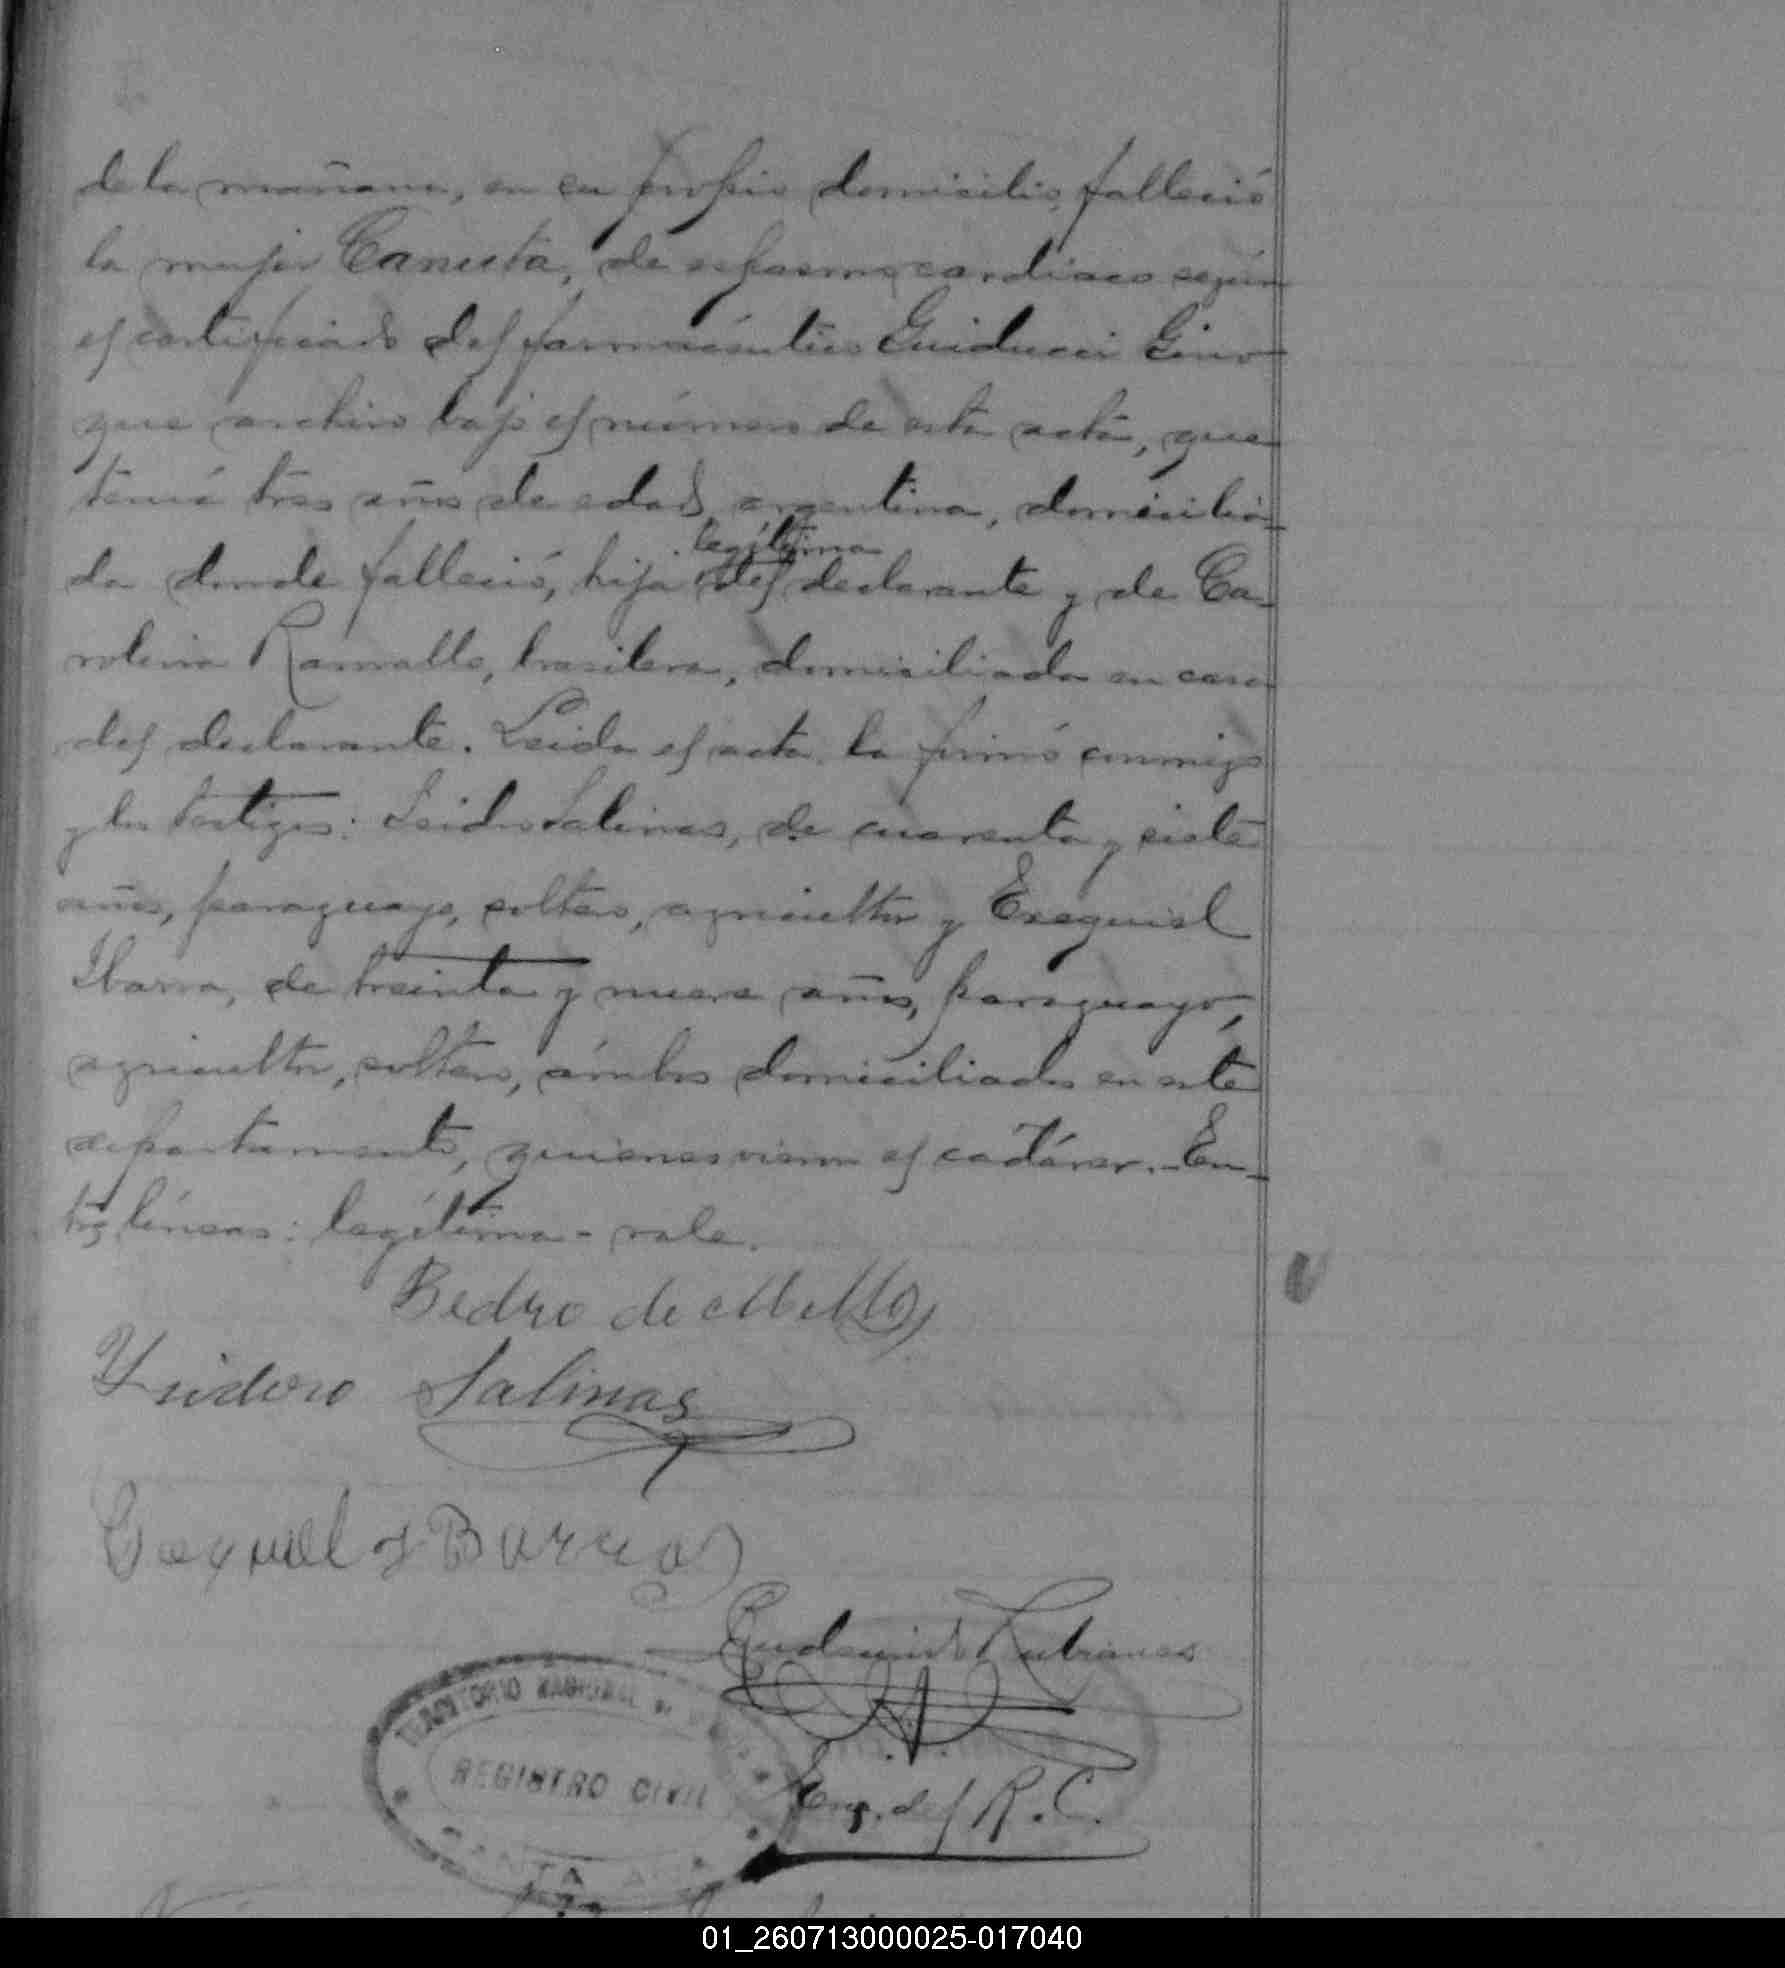 de la mañana, en su propio domicilio, falleció
la mujer Canuta, de espasmo cardiaco según
el certificado del farmacéutico Guiducci Gino
que archivo bajo el número de esta acta, que
tenía tres años de edad, argentina, domicilia-
da donde falleció, hija legítima del declarante y de Ca-
rolina Ramallo, brasilera, domiciliada en casa
del declarante. Leida el acta la firmó conmigo
y los testigos: Isidro Salinas, de cuarenta y siete
años, paraguayo, soltero, agricultor y Exequiel
Ibarra, de treinta y nueve años, paraguayo,
agricultor, soltero, ámbos domiciliados en este
departamento, quienes vieron el cadáver.-En-
tre líneas: legítima - vale.
Pedro de Mello
Ysidoro Salinas
Exequiel Ybarra
TERRITORIO NACIONAL
REGISTRO CIVIL
SANTA ANA
Enc. del R. C.
01_260713000025-017040